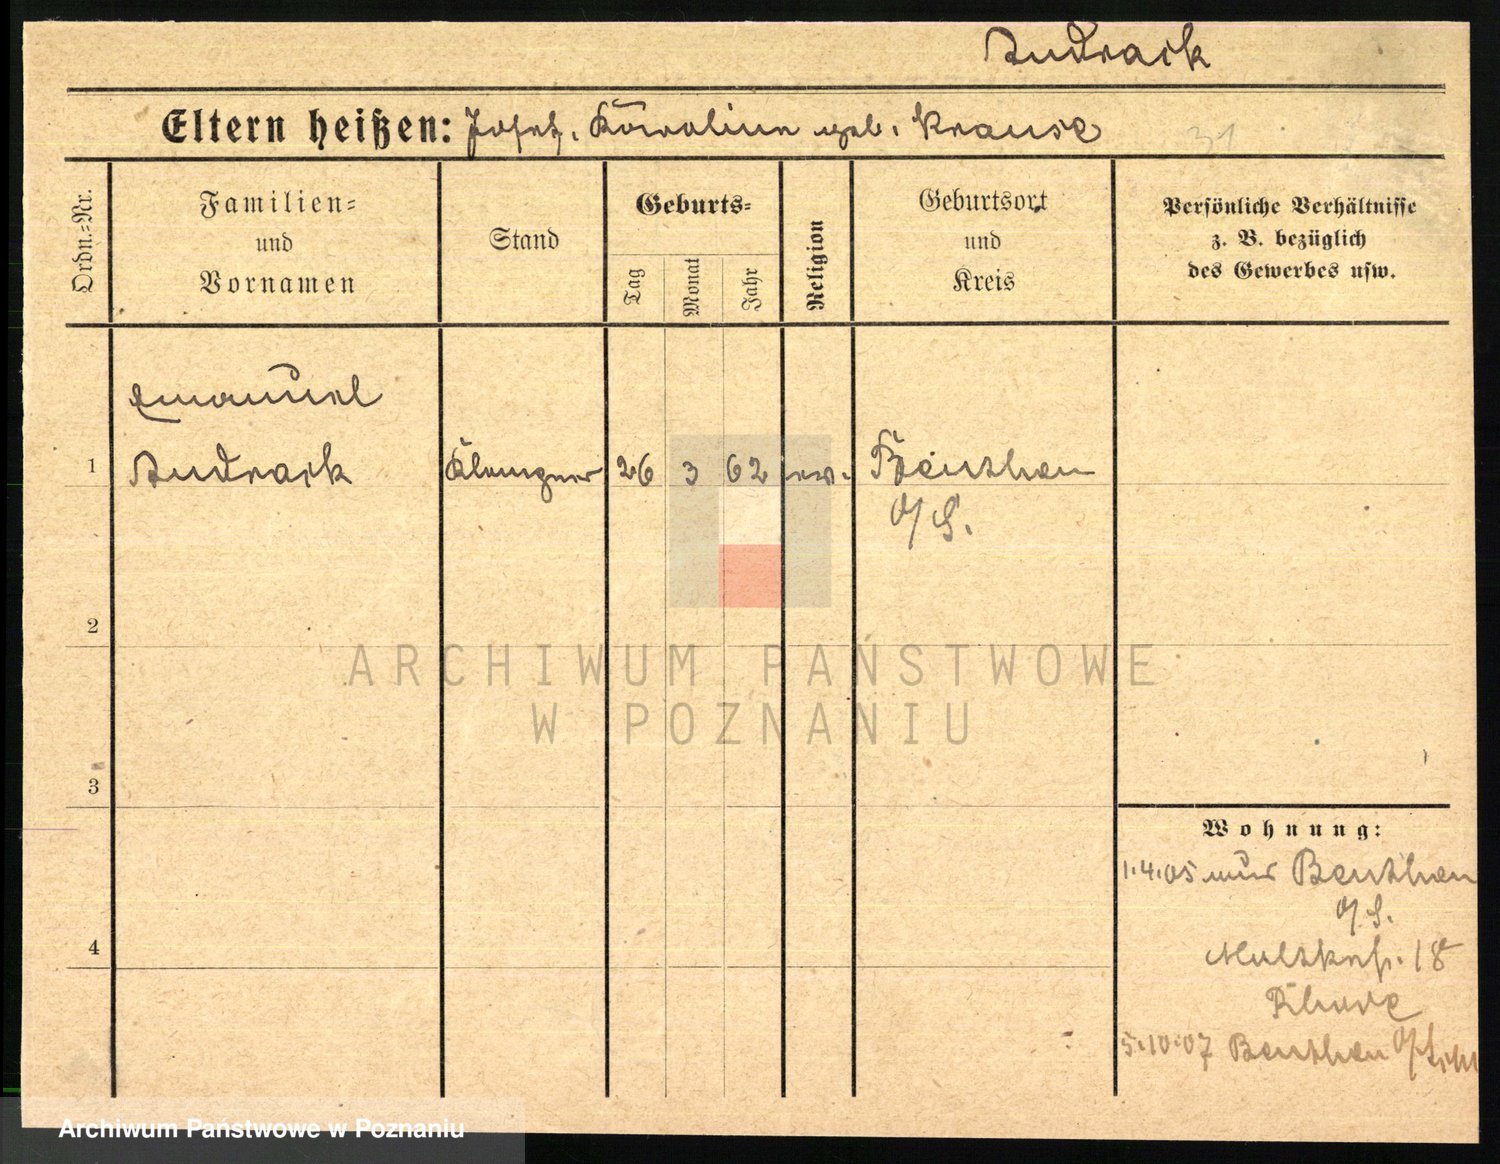 Andrack
Eltern heißen: Josef, Karoline geb. Krause
31
Ordn.-Nr.
Familien-
und
Vornamen
Stand
Geburts-
Tag
Monat
Jahr
Religion
Geburtsort
und
Kreis
Persönliche Verhältnisse
z. B. bezüglich
des Gewerbes usw.
Emanuel
1 Andrack Klempner 26 3 62 ev. Beuthen
O/S.
2
3
4
Wohnung:
1.4.05 Beuthen
O/S.
Moltkestr. 18
5.10.07 Beuthen
ARCHIWUM PAŃSTWOWE
W POZNANIU
Archiwum Państwowe w Poznaniu